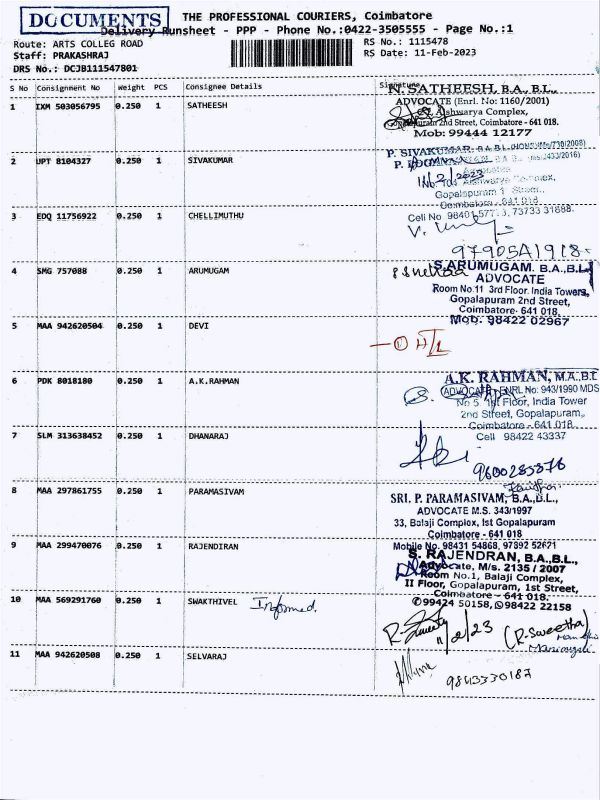 DOCUMENTS
THE PROFESSIONAL COURIERS, Coimbatore
Delivery Runsheet - PPP - Phone No.:0422-3505555 - Page No.:1
Route: ARTS COLLEG ROAD
RS No.: 1115478
Staff: PRAKASHRAJ
RS Date: 11-Feb-2023
DRS No.: DCJB111547801
S No Consignment No Weight PCS Consignee Details Signature
1 IXM 503056795 0.250 1 SATHEESH
N. SATHEESH, B.A., B.L.,
ADVOCATE (Enrl. No: 1160/2001)
Aishwarya Complex,
2nd Street, Coimbatore - 641 018.
Mob: 99444 12177
2 UPT 8104327 0.250 1 SIVAKUMAR
P. SIVAKUMAR, B.A., B.L.
11/2/2023
Gopalapuram 1 Street,
Coimbatore - 641 018
3 EDQ 11756922 0.250 1 CHELLIMUTHU
Cell No
4 SMG 757088 0.250 1 ARUMUGAM
S.ARUMUGAM. B.A.,B.L.
ADVOCATE
Room No.11 3rd Floor. India Towers,
Gopalapuram 2nd Street,
Coimbatore- 641 018.
Mob: 98422 02967
5 MAA 942620504 0.250 1 DEVI
6 PDK 8018180 0.250 1 A.K.RAHMAN
A.K. RAHMAN, M.A.,B.L
ADVOCATE ENRL No: 943/1990 MDS
No 5 1st Floor, India Tower
2nd Street, Gopalapuram,
Coimbatore - 641 018
Cell 98422 43337
7 SLM 313638452 0.250 1 DHANARAJ
9600285376
8 MAA 297861755 0.250 1 PARAMASIVAM
SRI. P. PARAMASIVAM, B.A.,B.L.,
ADVOCATE M.S. 343/1997
33, Balaji Complex, Ist Gopalapuram
Coimbatore - 641 018
Mobile No. 98431 54868, 97892 52621
9 MAA 299470076 0.250 1 RAJENDIRAN
S. RAJENDRAN, B.A.,B.L.,
Advocate, M/s. 2135 / 2007
Room No.1, Balaji Complex,
II Floor, Gopalapuram, 1st Street,
Coimbatore - 641 018.
99424 50158, 98422 22158
10 MAA 569291760 0.250 1 SWAKTHIVEL Informed.
11/2/23 (R-Sweetha)
11 MAA 942620508 0.250 1 SELVARAJ
9843330187